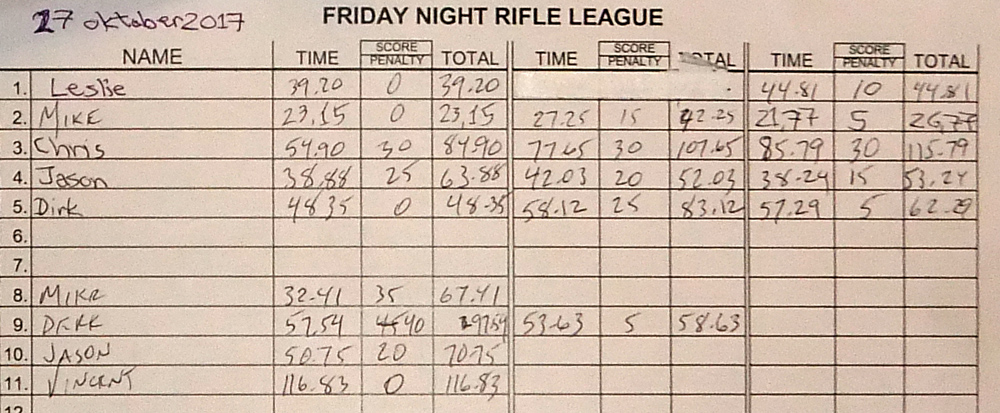 27 oktober 2017 FRIDAY NIGHT RIFLE LEAGUE
NAME TIME SCORE PENALTY TOTAL TIME SCORE PENALTY TOTAL TIME SCORE PENALTY TOTAL
1. Leslie 39.20 0 39.20 44.81 10 44.81
2. MIKE 23.15 0 23,15 27.25 15 42.25 21,77 5 26,77
3. Chris 54.90 30 84.90 77.65 30 107.65 85.79 30 115.79
4. Jason 38.88 25 63.88 42.03 20 52.03 38.24 15 53.24
5. Dirk 48.35 0 48.35 58.12 25 83.12 57.29 5 62.29
6.
7.
8. MIKE 32.41 35 67.41
9. 57.54 40 97.54 53.63 5 58.63
10. JASON 50.75 20 70.75
11. VINCENT 116.83 0 116.83
12